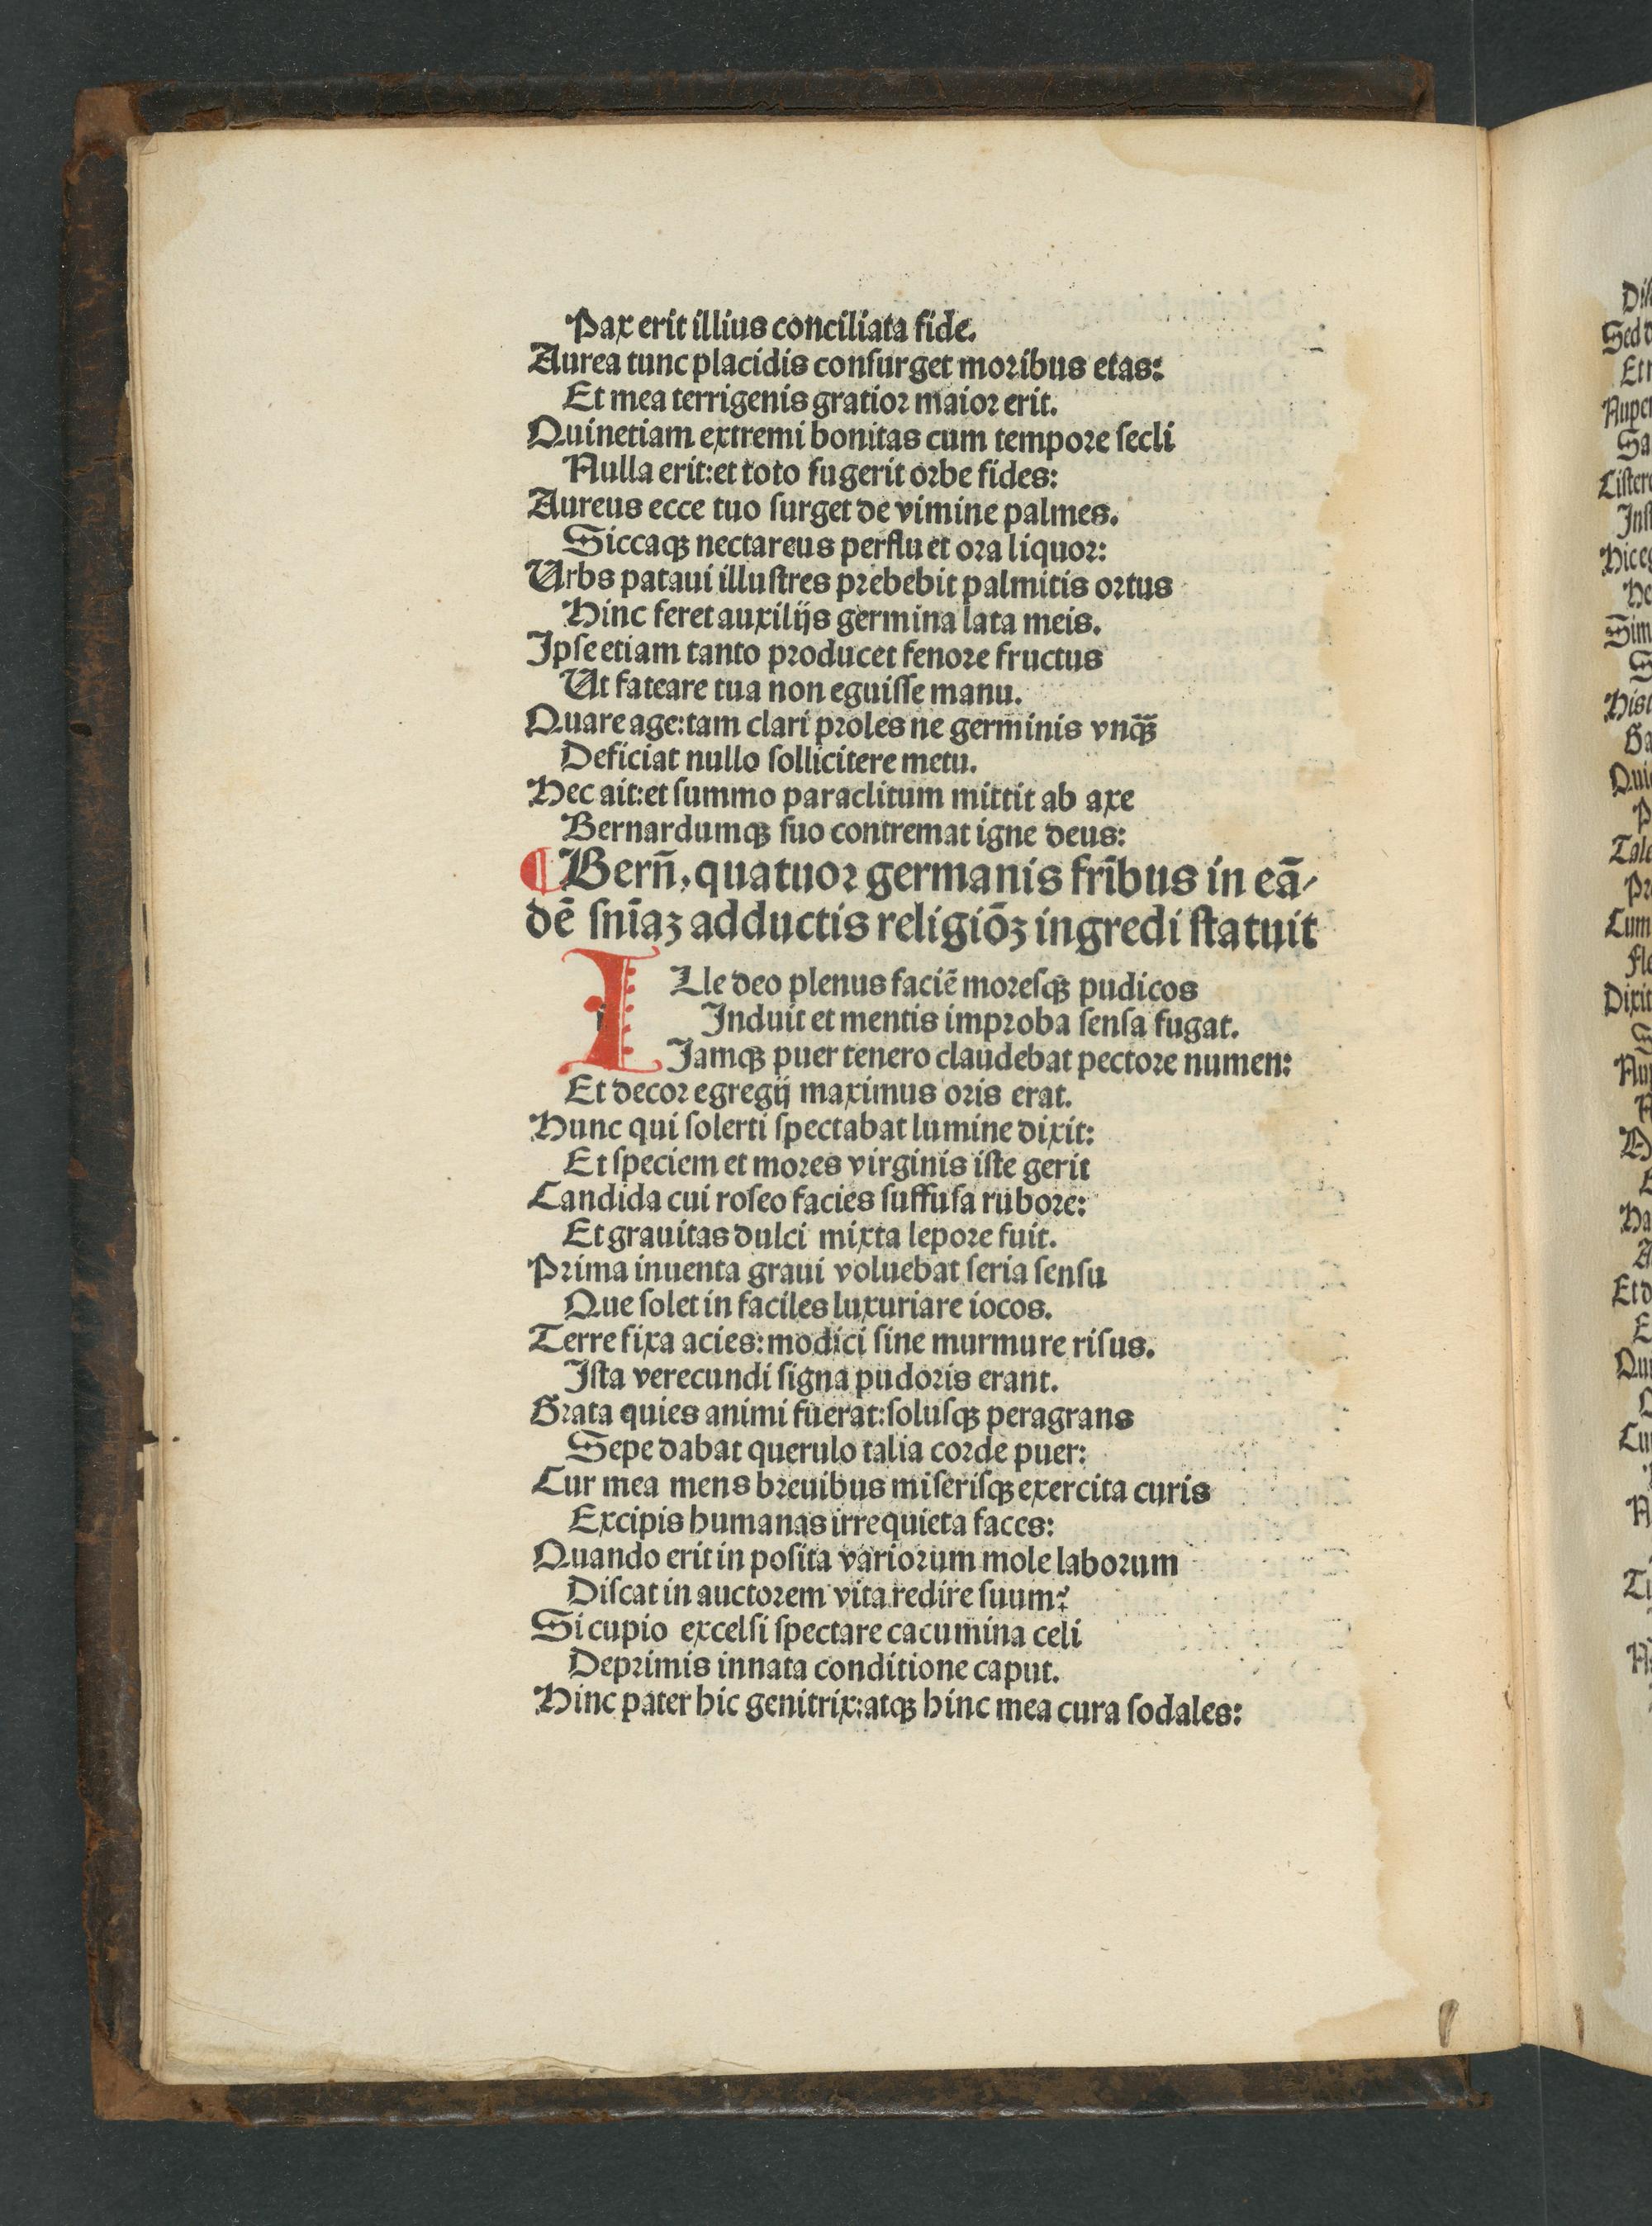 Pax erit illius conciliata fide.
Aurea tunc placidis conſurget moꝛibus etas:
Et mea terrigenis gratioꝛ maioꝛ erit.
Quinetiam extremi bonitas cum tempoꝛe ſecli
Nulla erit:et toto fugerit oꝛbe fides:
Aureus ecce tuo ſurget de vimine palmes.
Siccaqꝫ nectareus perfluet oꝛa liquoꝛ:
Urbs pataui illuſtres pꝛebebit palmitis oꝛtus
Hinc feret auxilijs germina lata meis.
Ipſe etiam tanto pꝛoducet fenoꝛe fructus
Ut fateare tua non eguiſſe manu.
Quare age:tam clari pꝛoles ne germinis vnq̄ꝫ
Deficiat nullo ſollicitere metu.
Hec ait:et ſummo paraclitum mittit ab axe
Bernardumqꝫ ſuo contremat igne deus:
¶Berñ, quatuoꝛ germanis fr̄ibus in eā⸗
dē ſnīaꝫ adductis religiōꝫ ingredi ſtatuit
ILle deo plenus faciē moꝛeſqꝫ pudicos
Induit et mentis impꝛoba ſenſa fugat.
Jamqꝫ puer tenero claudebat pectoꝛe numen:
Et decoꝛ egregij maximus oꝛis erat.
Hunc qui ſolerti ſpectabat lumine dixit:
Et ſpeciem et moꝛes virginis iſte gerit
Candida cui roſeo facies ſuffuſa ruboꝛe:
Et grauitas dulci mixta lepoꝛe fuit.
Pꝛima inuenta graui voluebat ſeria ſenſu
Que ſolet in faciles luxuriare iocos.
Terre fixa acies:modici ſine murmure riſus.
Iſta verecundi ſigna pudoꝛis erant.
Gꝛata quies animi fuerat:ſoluſqꝫ peragrans
Sepe dabat querulo talia coꝛde puer:
Cur mea mens bꝛeuibus miſeriſqꝫ exercita curis
Excipis humanas irrequieta faces:
Quando erit in poſita varioꝛum mole laboꝛum
Diſcat in auctoꝛem vita redire ſuum?
Si cupio excelſi ſpectare cacumina celi
Depꝛimis innata conditione caput.
Hinc pater hic genitrix:atqꝫ hinc mea cura ſodales: